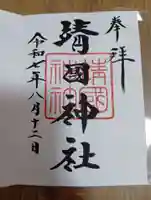 奉拝
靖國神社
靖國神社
令和七年八月十二日